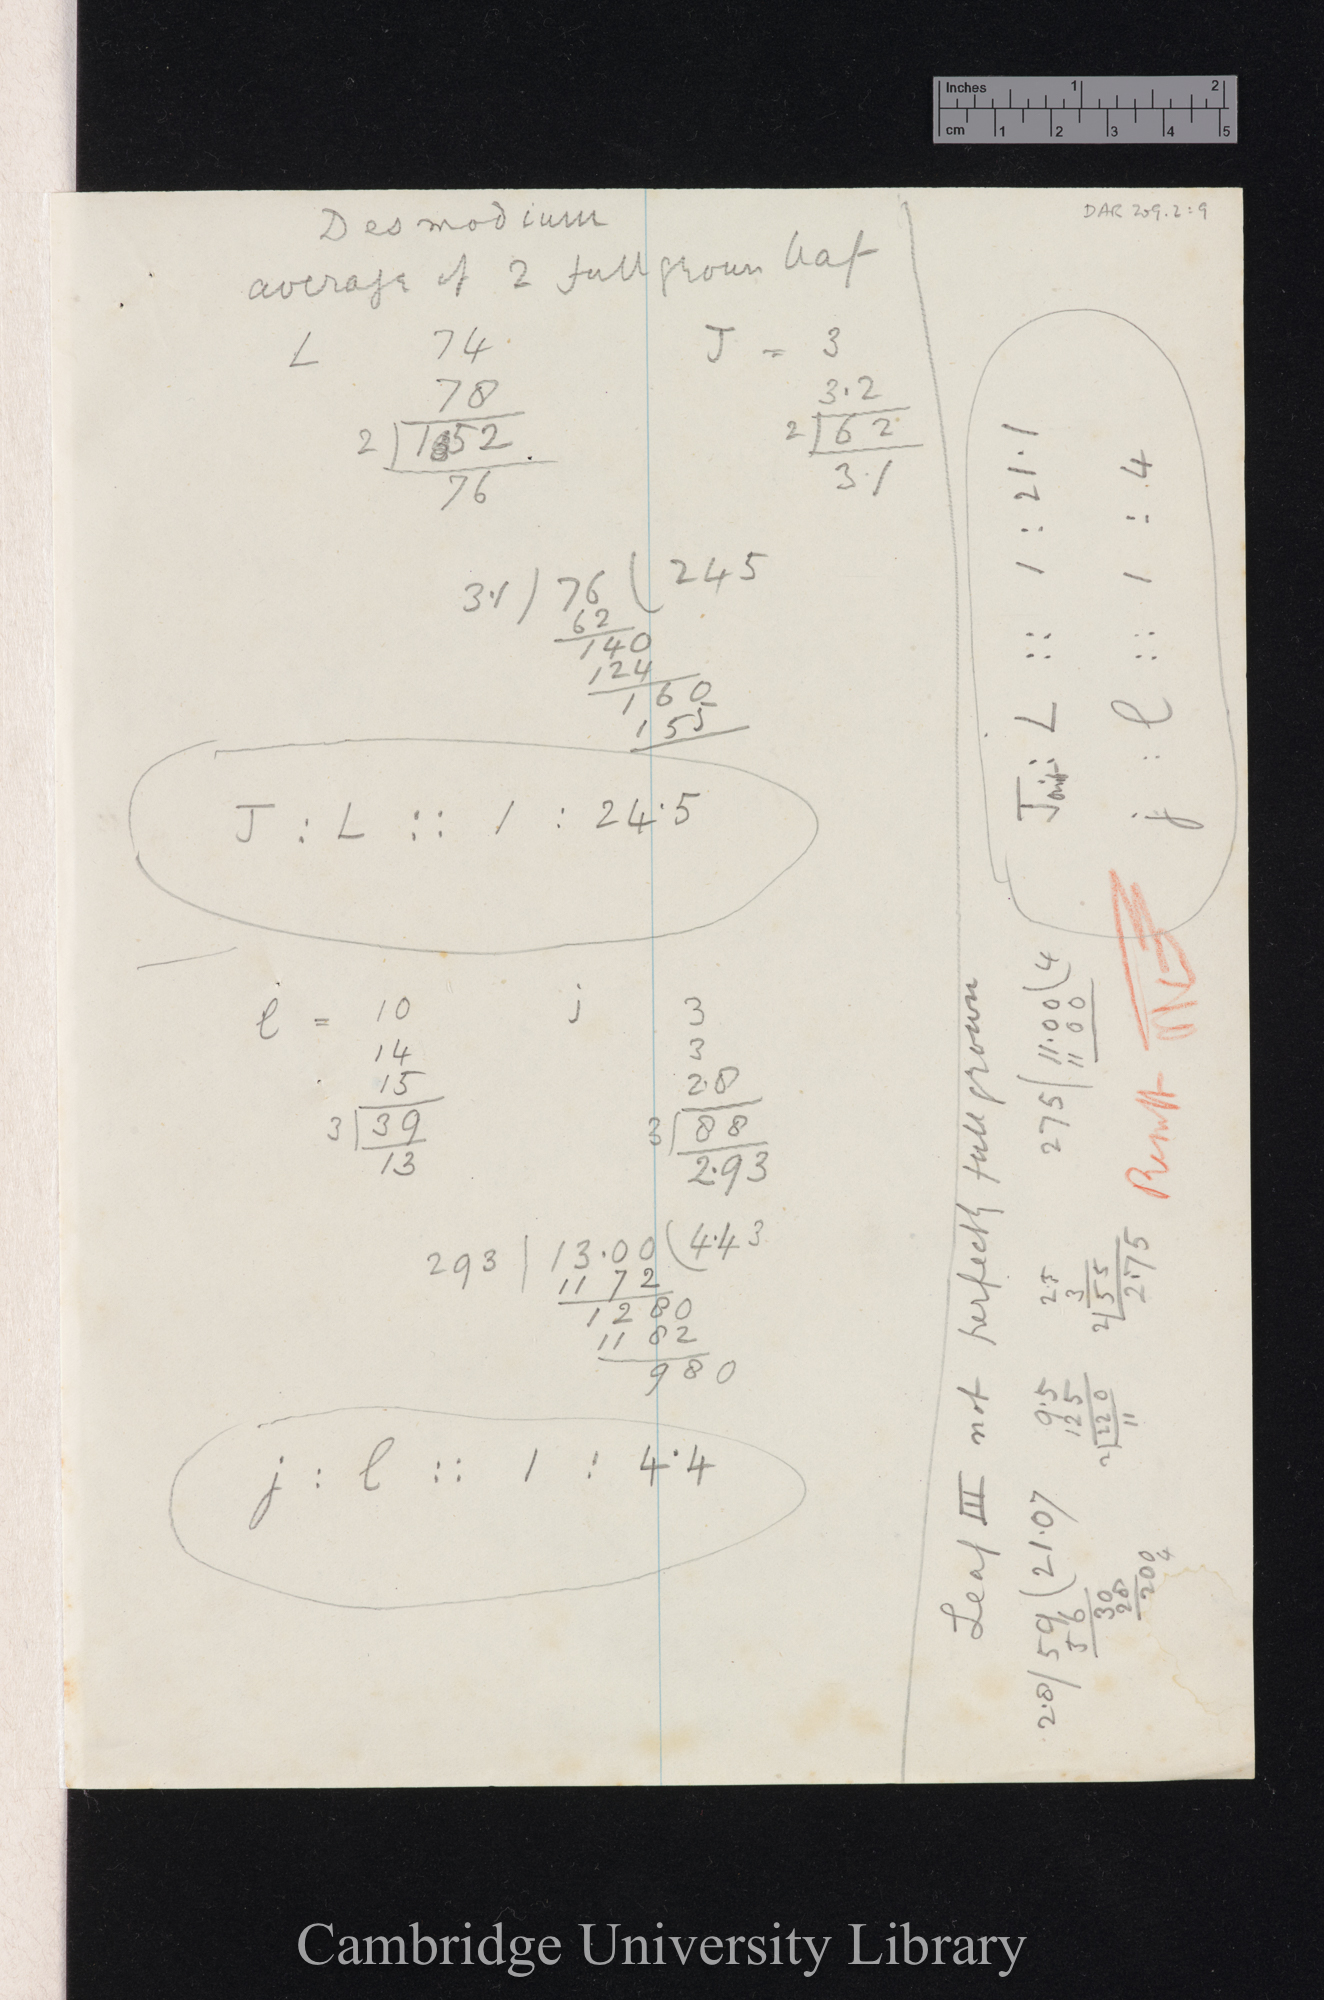 Inches 1 2
cm 1 2 3 4 5
DAR 209.2:9
Desmodium
average of 2 full grown leaf
L 74
78
2 152
76
J = 3
3.2
2 62
3.1
3.1 ) 76 ( 245
62
140
124
160
155
J : L :: 1 : 24.5
l = 10
14
15
3 39
13
j 3
3
2.8
3 88
2.93
293 | 13.00 ( 4.43
11 72
1280
11 82
980
j : l :: 1 : 4.4
Leaf III not perfectly full grown
2.8 / 59 ( 21.07
56
30
28
200
4
9.5
12 5
2 22 0
11
2.5
3
2 5 5
2.75
275 | 11.00 ( 4
11 00
Joint : L :: 1 : 21.1
j : l :: 1 : 4
Result
Cambridge University Library